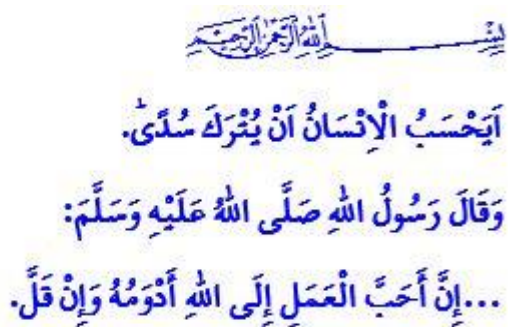 بِسْــــــــمِ اللّٰهِ الرَّحْمٰنِ الرَّحِيمِ
اَيَحْسَبُ الْاِنْسَانُ اَنْ يُتْرَكَ سُدًىۜ.
وَقَالَ رَسُولُ اللّٰهِ صَلَّى اللّٰهُ عَلَيْهِ وَسَلَّمَ:
...إِنَّ أَحَبَّ الْعَمَلِ إِلَى اللّٰهِ أَدْوَمُهُ وَإِنْ قَلَّ.